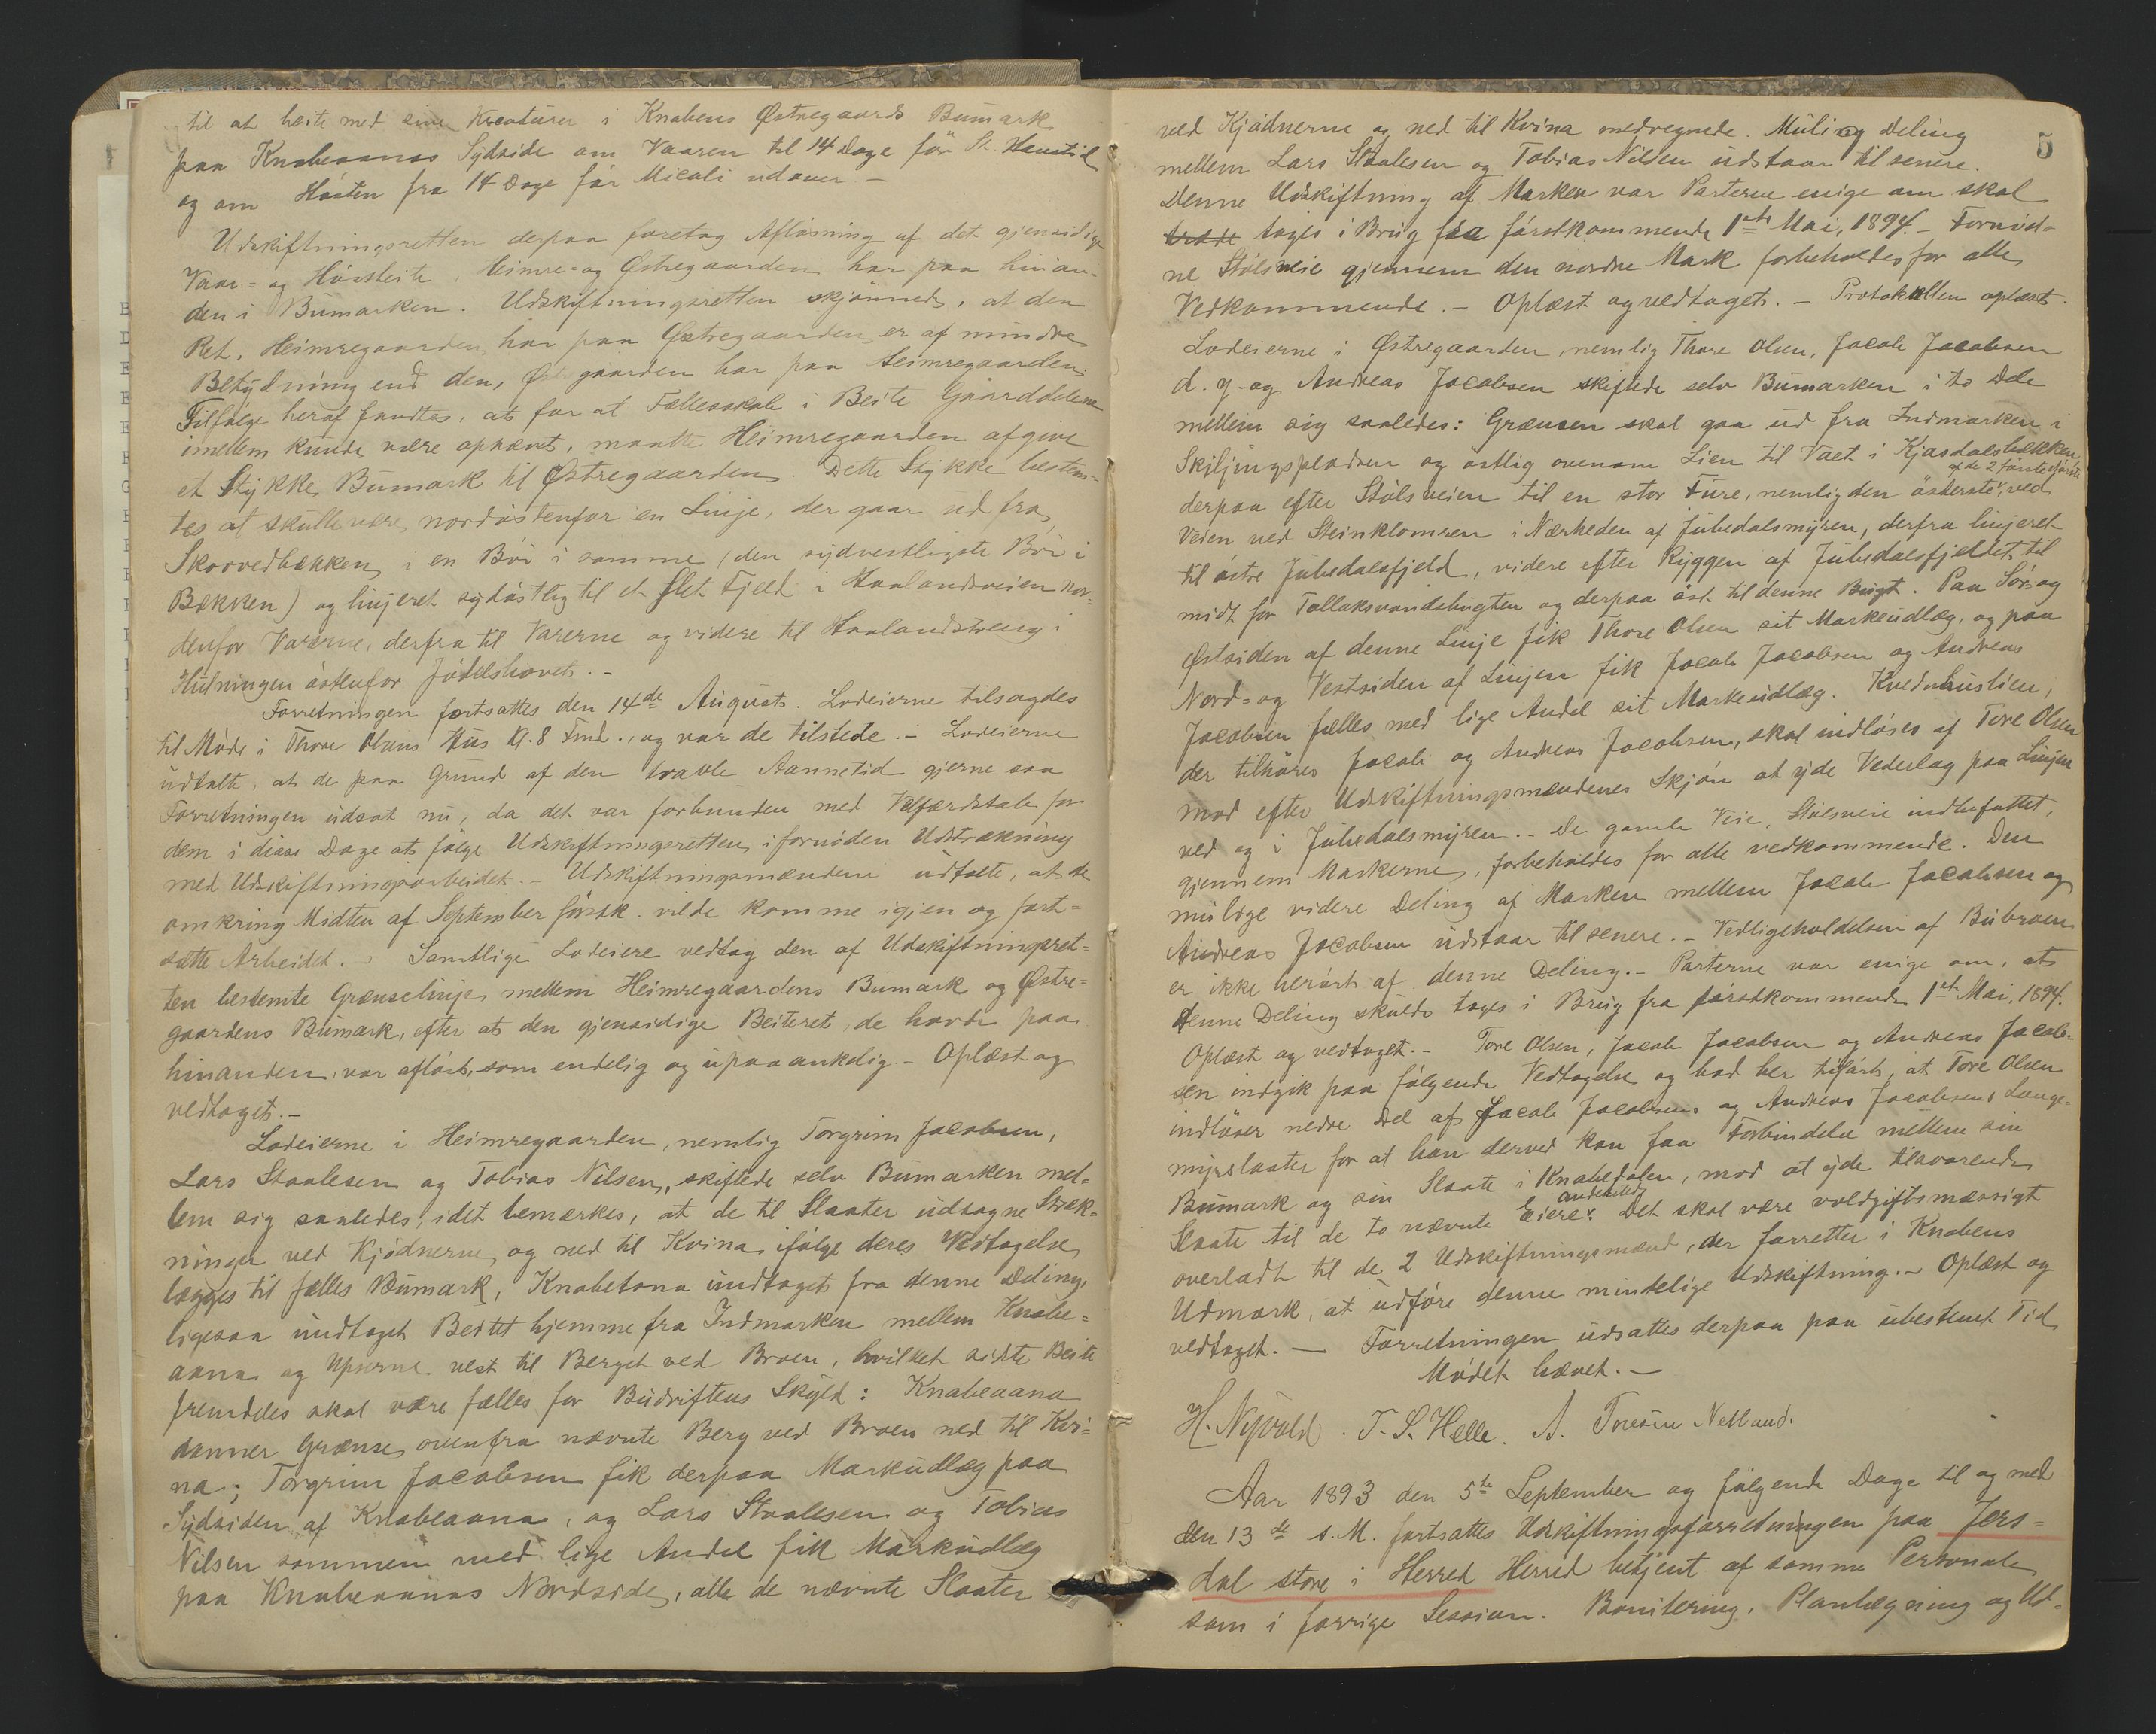 til at beite med sine Kreaturer i Knabens Østregaards Bumark
paa Knabeaanas Sydside om Vaaren til 14 Dage før St. Hanstid
og om Hösten fra 14 Dage før Micali udover –
Udskiftningsretten derpaa foretog Aflösning af det gjensidige
Vaar- og Höstbeite, Heimre- og Østregaarden har paa hinan-
den i Bumarken. Udskiftningsretten skjönnede, at den
Ret, Heimregaarden har paa Østregaarden er af mindre
Betydning end den, Østregaarden har paa Heimregaarden.
Tilfølge heraf fandtes, at for at Fællesskab i Beite Gaarddelene
imellem kunde være ophævet, maatte Heimregaarden afgive
et Stykke Bumark til Østregaarden. Dette Stykke bestem-
tes at skulle være nordöstenfor en Linje, der gaar ud fra
Skorvedbækken i en Böi i samme (den sydvestligste Böi i
Bækken) og linjeret sydöstlig til et slet Fjeld i Haalandsveien nor-
denfor Varerne, derfra til Varerne og videre til Haalandstreng i
Hulningen östenfor Jödelshovet. –
Forretningen fortsattes den 14de August. Lodeierne tilsagdes
til Möde i Thore Olsens Hus Kl. 8 Fmd., og var de tilstede. – Lodeierne
udtalte, at de paa Grund af den travle Aannetid gjerne saa
Forretningen udsat nu, da det var forbunden med Velfærdstab for
dem i disse Dage at fölge Udskiftningsretten i fornöden Udstrækning
med Udskiftningsarbeidet. – Udskiftningsmændene udtalte, at de
omkring Midten af September förstk. vilde komme igjen og fort-
sætte Arbeidet. – Samtlige Lodeiere vedtog den af Udskiftningsret-
ten bestemte Grænselinje mellem Heimregaardens Bumark og Østre-
gaardens Bumark, efter at den gjensidige Beiteret, de havde paa
hinanden, var aflöst, som endelig og upaaankelig. – Oplæst og
vedtaget. –
Lodeierne i Heimregaarden, nemlig Torgrim Jacobsen,
Lars Staalesen og Tobias Nilsen, skiftede selv Bumarken mel-
lem sig saaledes, idet bemærkes, at de til Slaater udtagne Stræk-
ninger ved Kjödnerne og ned til Kvina ifölge deres Vedtagelse
lægges til fælles Bumark, Knabetona undtaget fra denne Deling,
ligesaa undtaget Beitet hjemme fra Indmarken mellem Knabe-
aana og Upserne vest til Berget ved Broen, hvilket sidste Beite
fremdeles skal være fælles for Budriftens Skyld: Knabeaana
danner Grænse ovenfra nævnte Berg ved Broen ned til Kvi-
na; Torgrim Jacobsen fik derpaa Markudlæg paa
Sydsiden af Knabeaana, og Lars Staalesen og Tobias
Nilsen sammen med lige Andel fik Markudlæg
paa Knabeaanas Nordside, alle de nævnte Slaater
5
ved Kjödnerne og ned til Kvina medregnede. Mulig Deling
mellem Lars Staalesen og Tobias Nilsen udstaar til senere.
Denne Udskiftning af Marken var Parterne enige om skal
tages i Brug fra förstkommende 1ste Mai, 1894. – Fornöd-
ne Stölsveie gjennem den nordre Mark forbeholdes for alle
Vedkommende. – Oplæst og vedtaget. – Protokollen oplæst.
Lodeierne i Østregaarden, nemlig Thore Olsen, Jacob Jacobsen
d. y. og Andreas Jacobsen skiftede selv Bumarken i to Dele
mellem sig saaledes: Grænsen skal gaa ud fra Indmarken i
Skiljingspladsen og östlig ovenom Lien til Vaet i Kjasdalsbækken,
af de 2 förste Furer
derpaa efter Stölsveien til en stor Fure, nemlig den österste, ved
Veien ved Steinklomren i Nærheden af Jubedalsmyren, derfra linjeret
til östre Jubedalsfjeld, videre efter Ryggen af Jubedalsfjeldet til
midt for Tallaksvandsbugten og derpaa öst til denne Bugt. Paa Sör- og
Østsiden af denne Linje fik Thore Olsen sit Markeudlæg, og paa
Nord- og Vestsiden af Linjen fik Jacob Jacobsen og Andreas
Jacobsen fælles med lige Andel sit Markeudlæg. Kvednhuslien,
der tilhörer Jacob og Andreas Jacobsen, skal indlöses af Tore Olsen
mod efter Udskiftningsmændenes Skjön at yde Vederlag paa Linjen
ved og i Jubedalsmyren. – De gamle Veie, Stölsveie indbefattet,
gjennem Markerne, forbeholdes for alle vedkommende. Den
mulige videre Deling af Marken mellem Jacob Jacobsen og
Andreas Jacobsen udstaar til senere. – Vedligeholdelsen af Bubroen
er ikke berört af denne Deling. – Parterne var enige om, at
denne Deling skulde tages i Brug fra förstkommende 1ste Mai, 1894.
Oplæst og vedtaget. – Tore Olsen, Jacob Jacobsen og Andreas Jacob-
sen indgik paa fölgende Vedtagelse og bad her tilfört, at Tore Olsen
indlöser nedre Del af Jacob Jacobsens og Andreas Jacobsens Lange-
myrslaater for at han derved kan faa Forbindelse mellem sin
Bumark og sin Slaate i Knabedalen, mod at yde tilsvarende
andetsteds
Slaate til de to nævnte Eiere. Det skal være voldgiftsmæssigt
overladt til de 2 Udskiftningsmænd, der forretter i Knabens
Udmark, at udföre denne mindelige Udskiftning. – Oplæst og
vedtaget. – Forretningen udsattes derpaa paa ubestemt Tid
Mödet hævet. –
H. Nyvold. T. S. Helle. A. Toresen Netland.
Aar 1893 den 5te September og fölgende Dage til og med
den 13de s. M. fortsattes Udskiftningsforretningen paa Jers-
dal store i Herred Herred betjent af samme Personale
som i forrige Session. Bonitering, Planlægning og Ud-